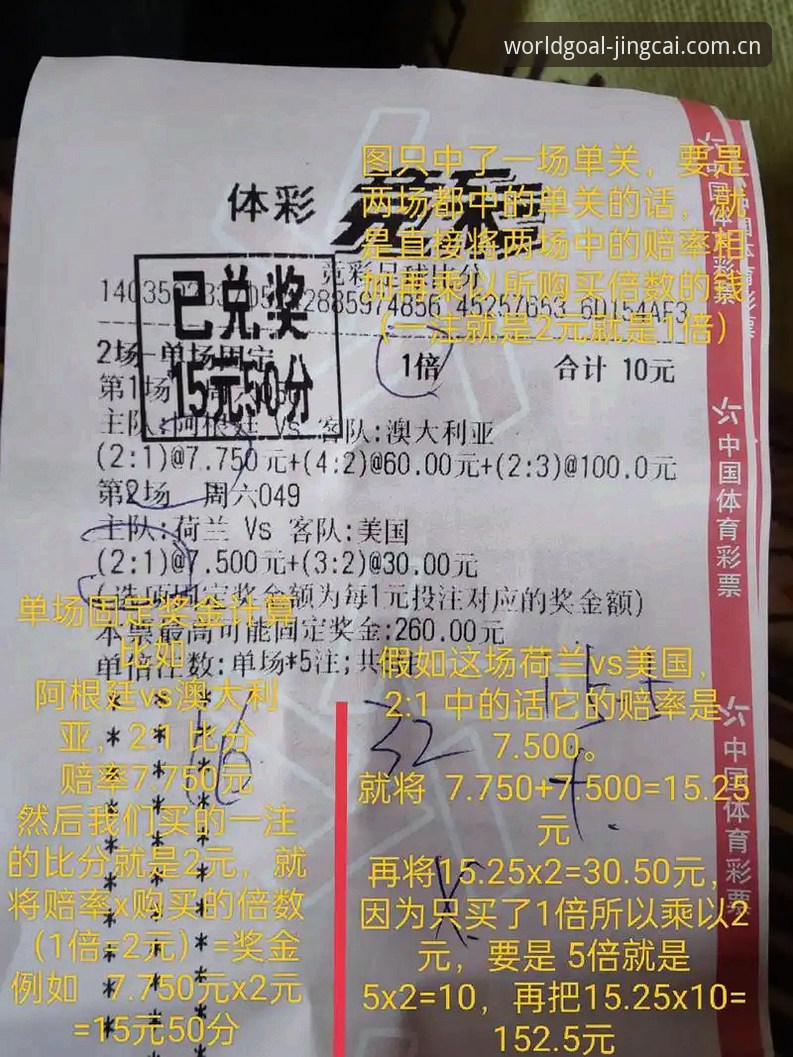 worldgoal-jingcai.com.cn
图只中了一场单关，要是
两场都中的单关的话，就
是直接将两场中的赔率相
加再乘以所购买倍数的钱
（一注就是2元就是1倍）
体彩
竞彩足球比分
已兑奖
15元50分
2场-单场固定
1倍
合计 10元
第1场 周六
主队:阿根廷 Vs 客队:澳大利亚
(2:1)@7.750元+(4:2)@60.00元+(2:3)@100.0元
第2场 周六049
主队:荷兰 Vs 客队:美国
(2:1)@7.500元+(3:2)@30.00元
(选项固定奖金额为每1元投注对应的奖金额)
本票最高可能固定奖金:260.00元
单倍注数:单场*5注;共
单场固定奖金计算
比如
阿根廷vs澳大利
亚，2:1 比分
赔率7.750元
然后我们买的一注
的比分就是2元，就
将赔率x购买的倍数
（1倍=2元）=奖金
例如 7.750元x2元
=15元50分
假如这场荷兰vs美国，
2:1 中的话它的赔率是
7.500。
就将 7.750+7.500=15.25
元
再将15.25x2=30.50元，
因为只买了1倍所以乘以2
元，要是 5倍就是
5x2=10，再把15.25x10=
152.5元
32
中国体育彩票
中国体育彩票
中国体育彩票